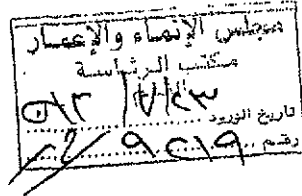 مجلس الإنماء والإعمار
مكتب الرئاسة
تاريخ الورود
رقم ٩٢١٩